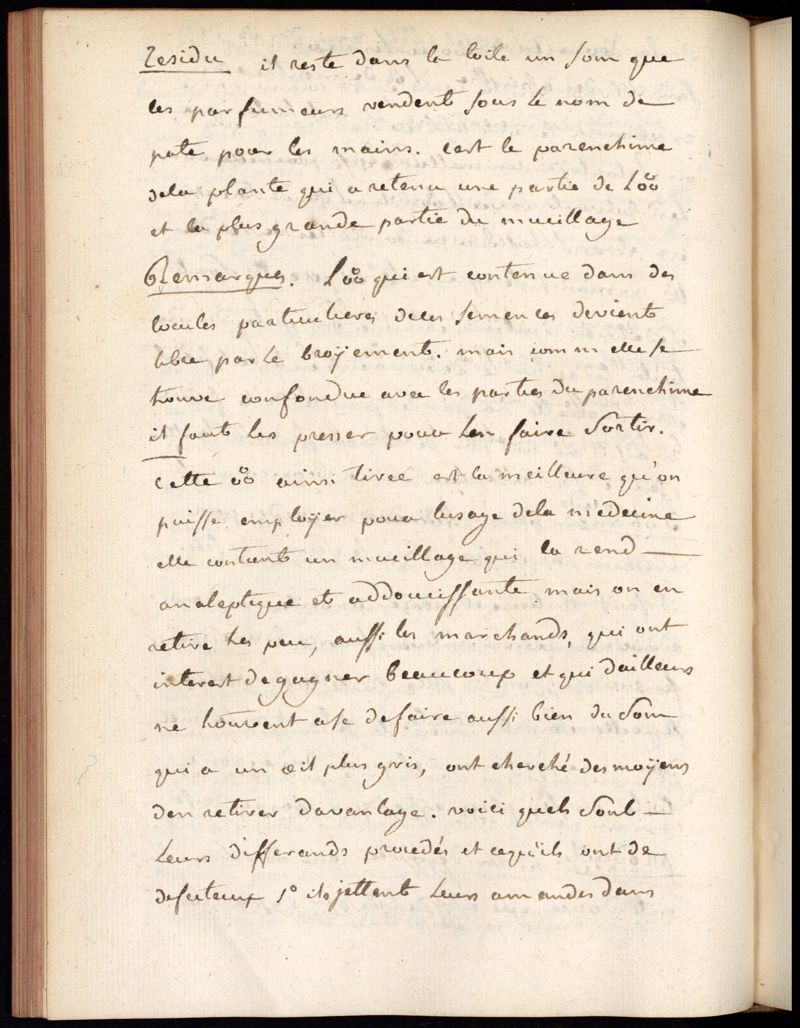 residu il reste dans la toile un som que
les parfumeurs vendent sous le nom de
pate pour les mains. cest le parenchime
dela plante qui a retenu une partie de L'oo
et la plus grande partie du mucillage
Remarques. L'oo qui est contenue dans des
locules particulieres deces semences devient
libre par le broÿement. mais comm elle se
trouve confondue avec les parties du parenchime
il faut les presser pour len faire sortir.
cette oo ainsi tirée est la meilleure qu'on
puisse emploÿer pour lusage dela medecine
elle contient un mucillage qui la rend —
analeptique et addoucissante mais on en
retire tres peu, aussi les marchands, qui ont
interest de gagner beaucoup et qui dailleurs
ne trouvent a se defaire aussi bien du som
qui a un œil plus gris, ont cherché des moÿens
den retirer davantage. voici quels sont —
Leurs differands procedés et cequ'ils ont de
defectueux 1° ils jettent leurs amandes dans